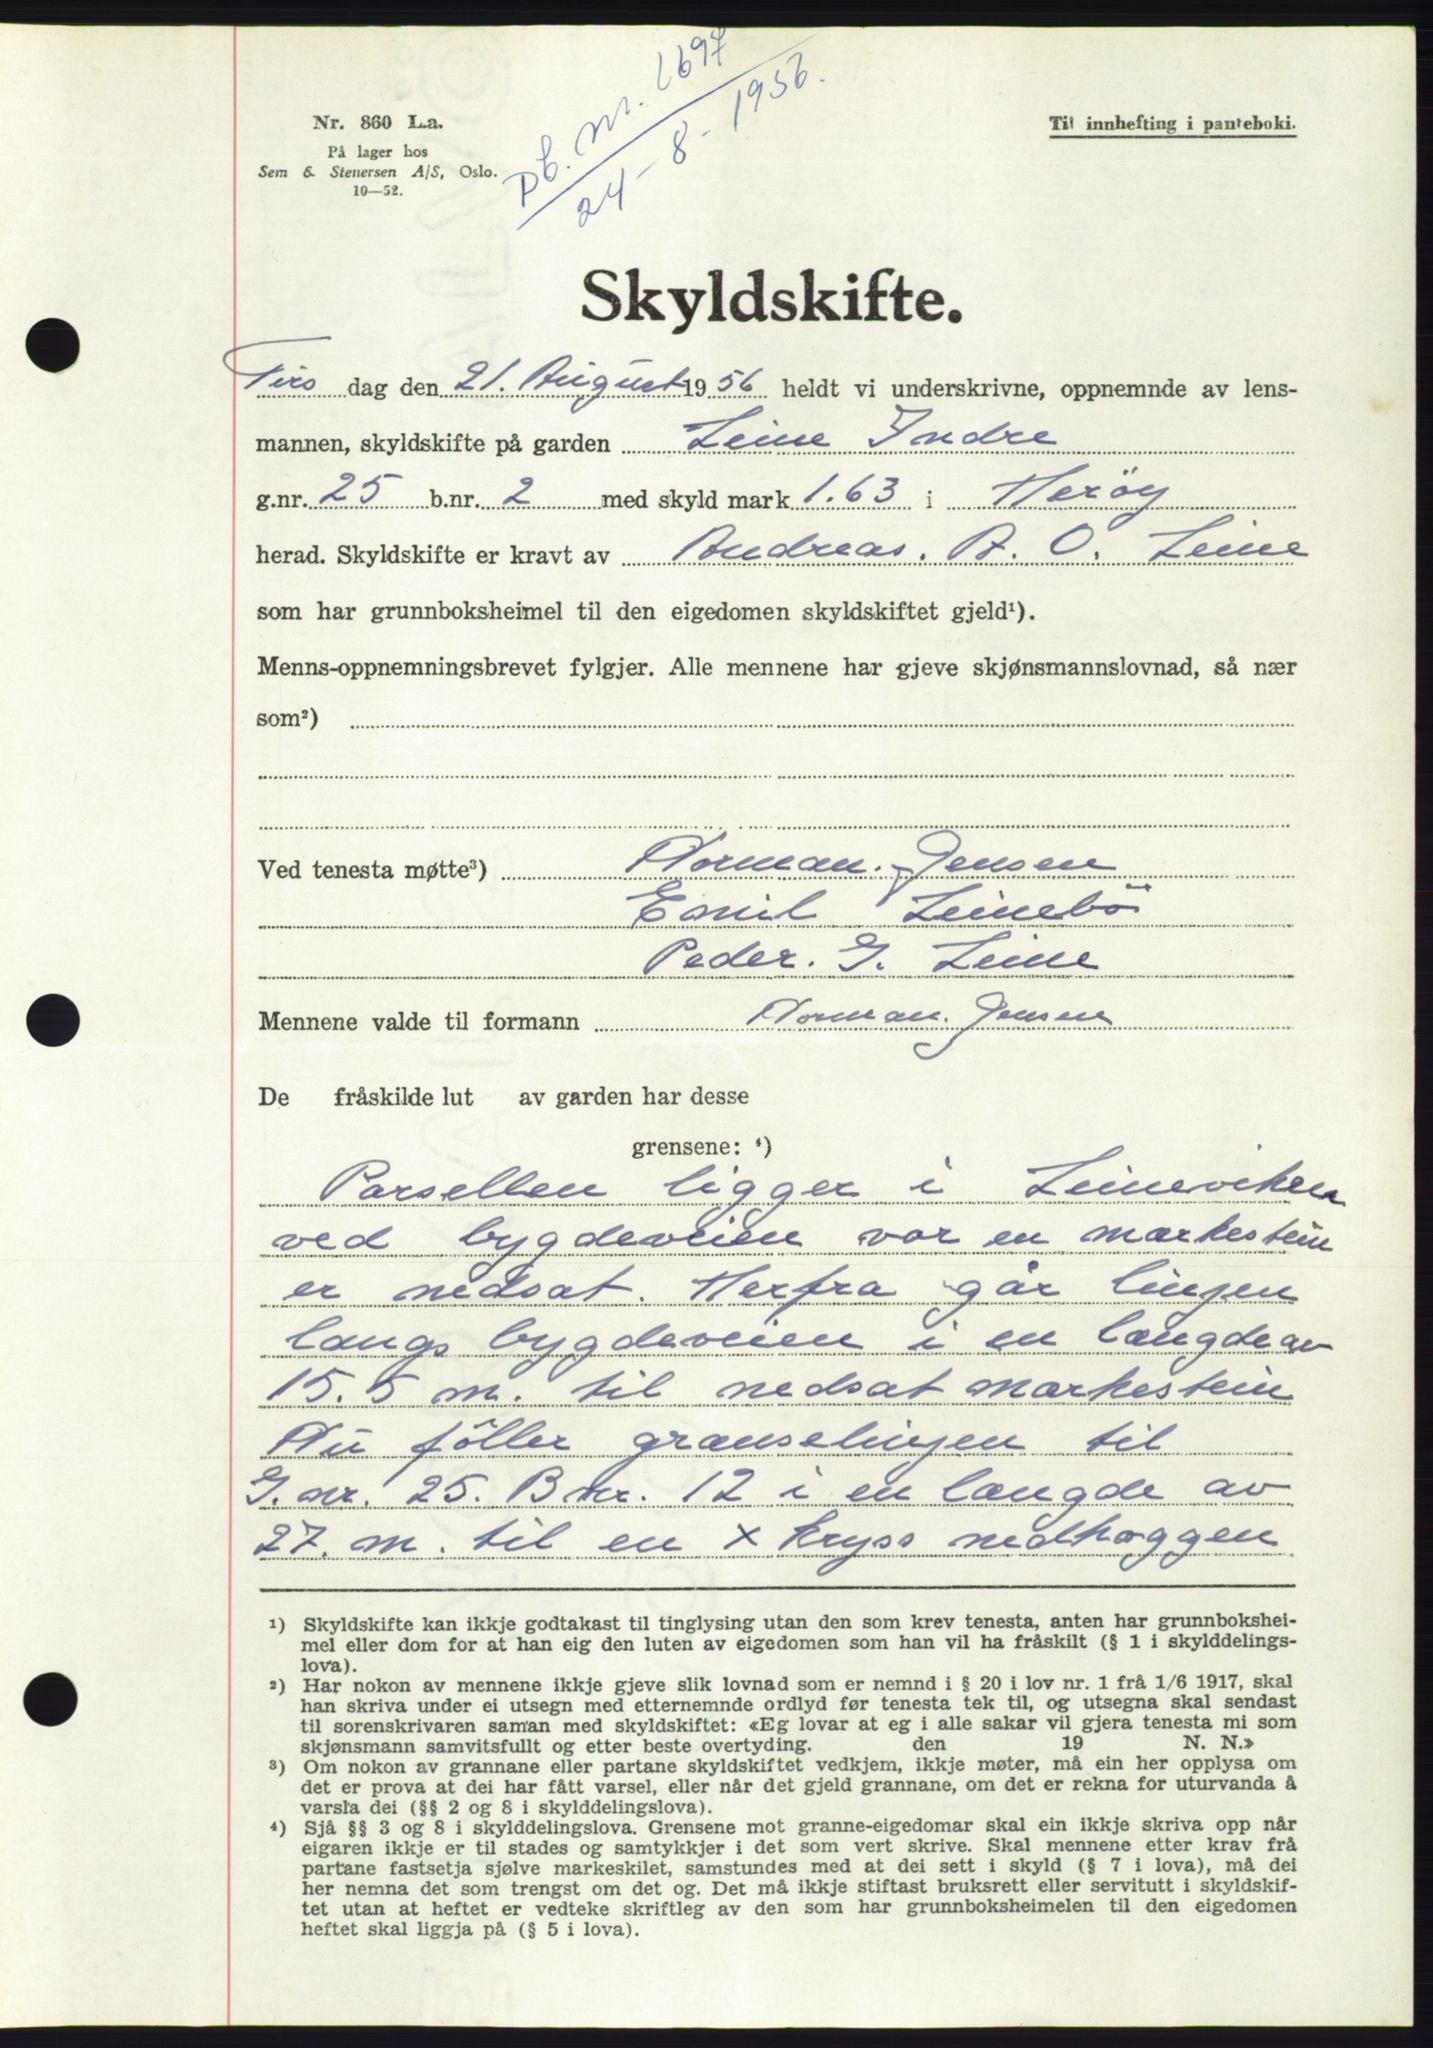 Pb. nr. 1697
24-8-1956.
Nr. 860 L.a.
På lager hos
Sem & Stenersen A/S, Oslo.
10—52.
Til innhefting i panteboki.
Skyldskifte.
Tirs dag den 21. August 1956 heldt vi underskrivne, oppnemnde av lens-
mannen, skyldskifte på garden Leine Indre
g.nr. 25 b.nr. 2 med skyld mark 1.63 i Herøy
herad. Skyldskifte er kravt av Andreas. A. O. Leine
som har grunnboksheimel til den eigedomen skyldskiftet gjeld¹).
Menns-oppnemningsbrevet fylgjer. Alle mennene har gjeve skjønsmannslovnad, så nær
som²)
Ved tenesta møtte³) Norman. Jensen
Emil Leinebö
Peder. G. Leine
Mennene valde til formann Norman. Jensen
De fråskilde lut av garden har desse
grensene: ⁴)
Parsellen ligger i Leineviken
ved bygdeveien vor en markestein
er nedsat. Herfra går linjen
langs bygdeveien i en længde av
15.5 m. til nedsat markestein
Nu föller grænselinjen til
G. nr. 25. B nr. 12 i en længde av
27. m. til en x kryss nedhoggen
¹) Skyldskifte kan ikkje godtakast til tinglysing utan den som krev tenesta, anten har grunnbokshei-
mel eller dom for at han eig den luten av eigedomen som han vil ha fråskilt (§ 1 i skylddelings-
lova).
²) Har nokon av mennene ikkje gjeve slik lovnad som er nemnd i § 20 i lov nr. 1 frå 1/6 1917, skal
han skriva under ei utsegn med etternemnde ordlyd før tenesta tek til, og utsegna skal sendast
til sorenskrivaren saman med skyldskiftet: «Eg lovar at eg i alle sakar vil gjera tenesta mi som
skjønsmann samvitsfullt og etter beste overtyding. den 19 N. N.»
³) Om nokon av grannane eller partane skyldskiftet vedkjem, ikkje møter, må ein her opplysa om
det er prova at dei har fått varsel, eller når det gjeld grannane, om det er rekna for uturvanda å
varsla dei (§§ 2 og 8 i skylddelingslova).
⁴) Sjå §§ 3 og 8 i skylddelingslova. Grensene mot granne-eigedomar skal ein ikkje skriva opp når
eigaren ikkje er til stades og samtykkjer i det som vert skrive. Skal mennene etter krav frå
partane fastsetja sjølve markeskilet, samstundes med at dei sett i skyld (§ 7 i lova), må dei
her nemna det som trengst om det og. Det må ikkje stiftast bruksrett eller servitutt i skyldskif-
tet utan at heftet er vedteke skriftleg av den som har grunnboksheimelen til den eigedomen
heftet skal liggja på (§ 5 i lova).